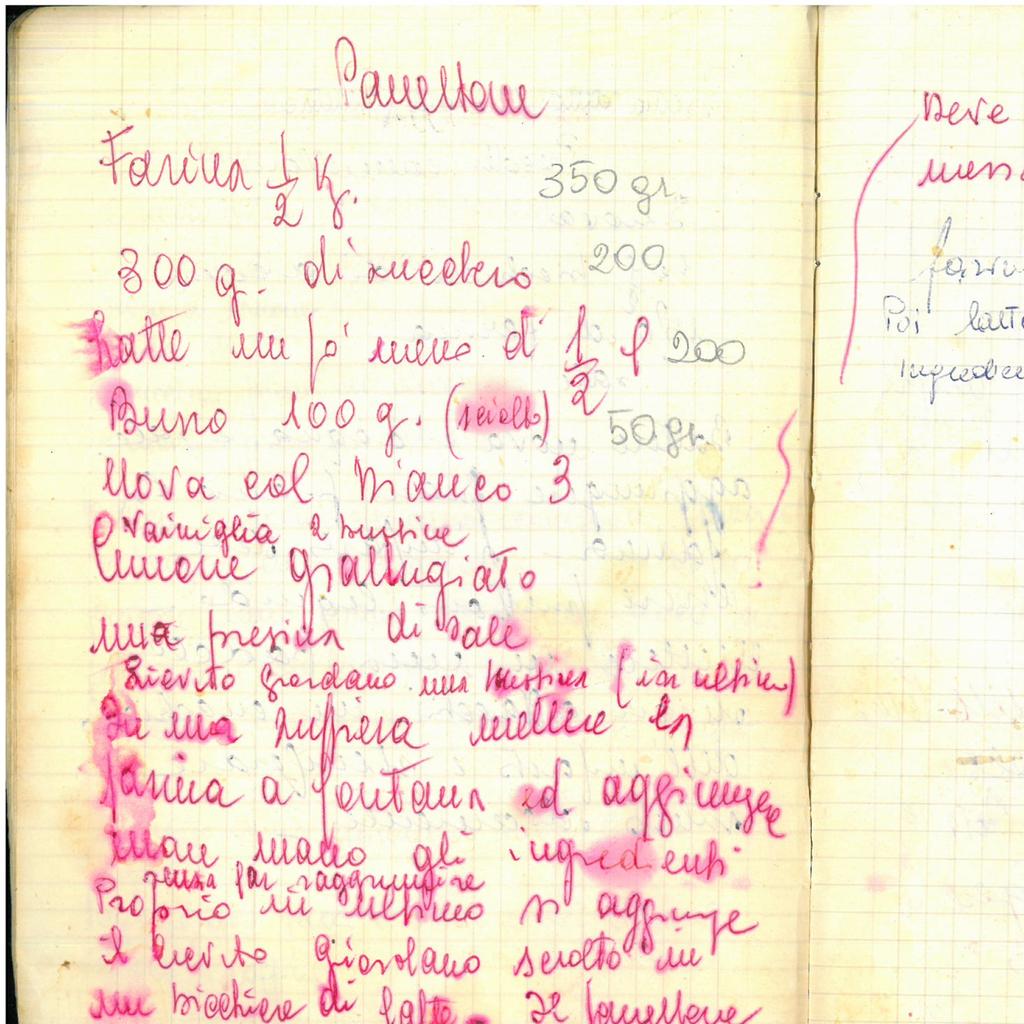 Panettone
Farina 1/2 K. 350 gr.
300 g. di zucchero 200
Latte un pò meno di 1/2 l 200
Burro 100 g. (sciolto) 50 gr.
Uova col bianco 3
Vainiglia 2 bustine
Limone grattugiato
una presina di sale
Lievito Giordano una bustina (in ultimo)
In una zuppiera mettere la
farina a fontana ed aggiungere
man mano gli ingredienti
senza far raggrumire
Proprio in ultimo si aggiunge
il lievito Giordano sciolto in
un bicchiere di latte. Il panettone
Deve
farin
Poi latte